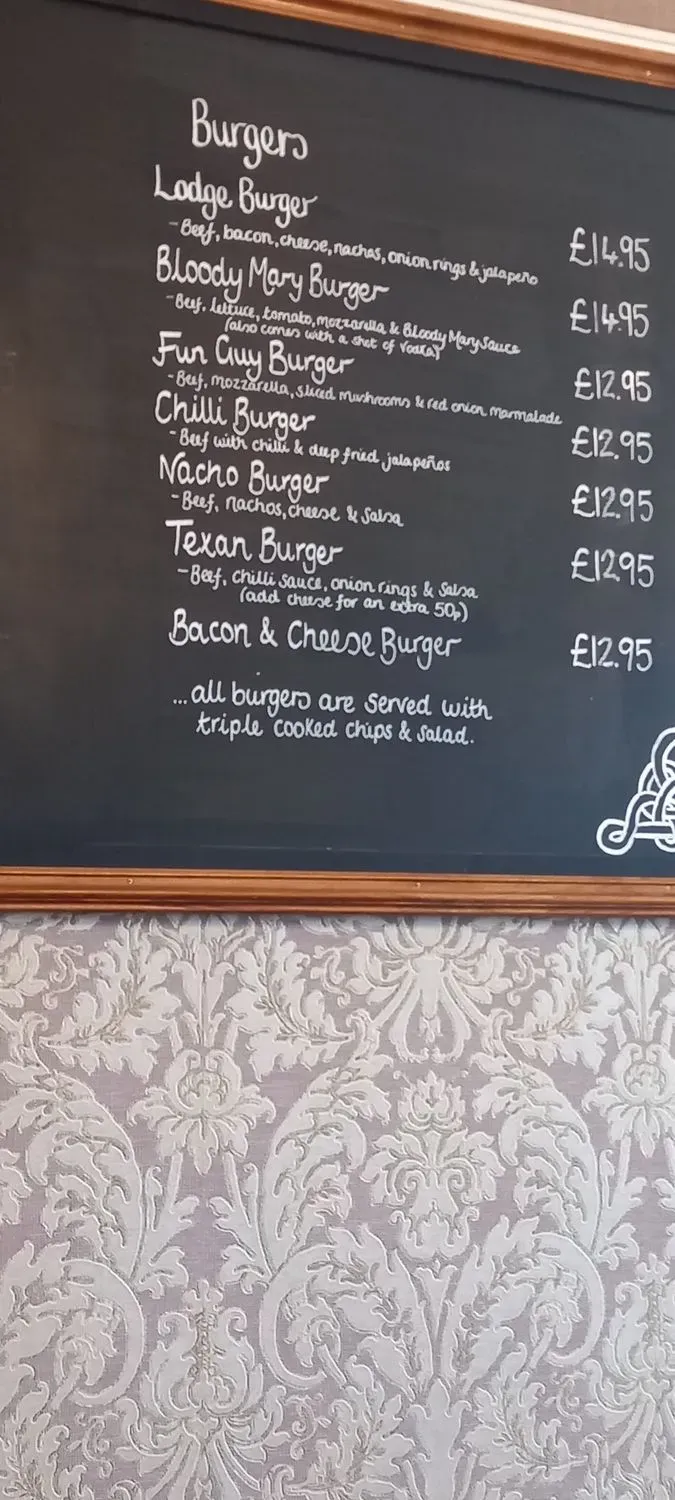 Burgers
Lodge Burger
- Beef, bacon, cheese, nachos, onion rings & jalapeño £14.95
Bloody Mary Burger
- Beef, lettuce, tomato, mozzarella & Bloody Mary Sauce £14.95
(also comes with a shot of vodka)
Fun Guy Burger
- Beef, mozzarella, sliced mushrooms & red onion marmalade £12.95
Chilli Burger £12.95
- Beef with chilli & deep fried jalapeños
Nacho Burger £12.95
- Beef, nachos, cheese & Salsa
Texan Burger £12.95
- Beef, Chilli Sauce, onion rings & Salsa
(add cheese for an extra 50p)
Bacon & Cheese Burger £12.95
...all burgers are served with
triple cooked chips & salad.